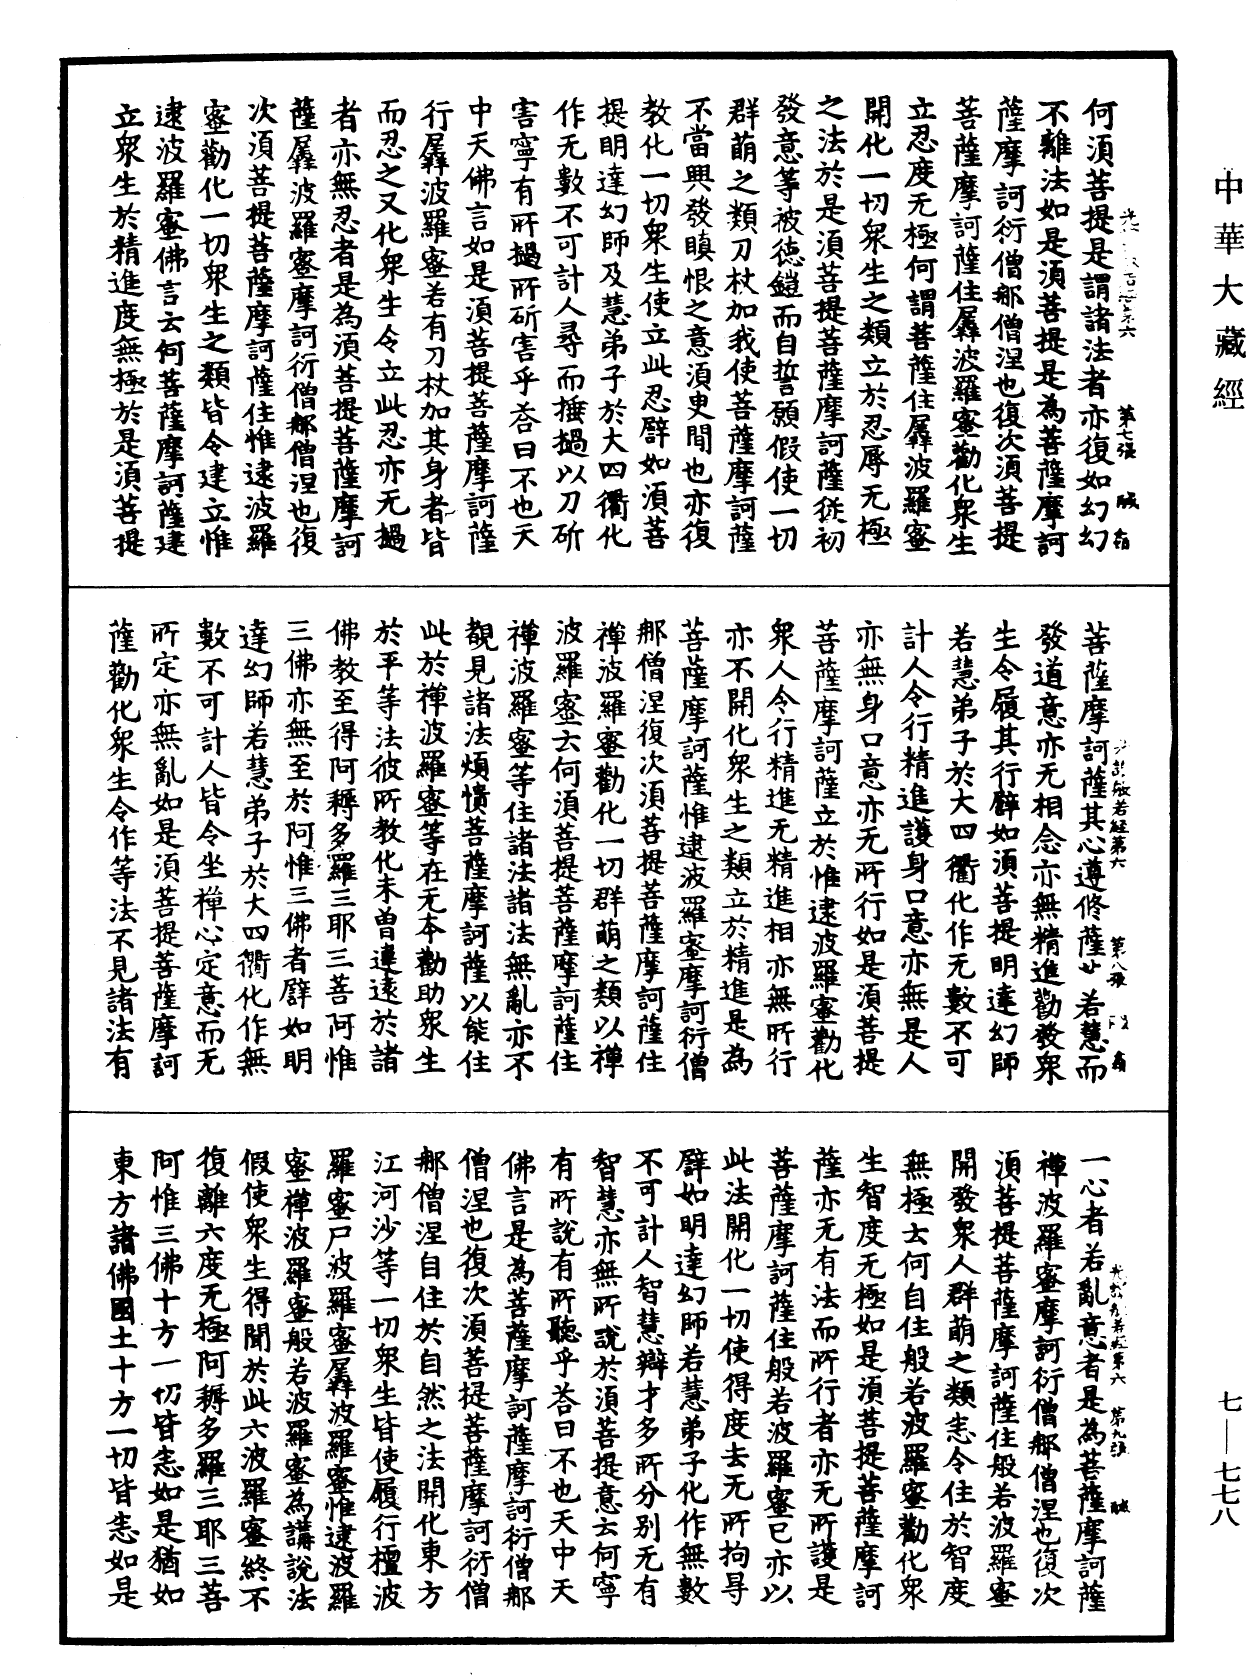 中華大藏經
何須菩提是謂諸法者亦復如幻幻
不離法如是須菩提是為菩薩摩訶
薩摩訶衍僧那僧涅也復次須菩提
菩薩摩訶薩住羼波羅蜜勸化衆生
立忍度无極何謂菩薩住羼波羅蜜
開化一切衆生之類立於忍辱无極
之法於是須菩提菩薩摩訶薩從初
發意䓁被德鎧而自誓願假使一切
群萌之類刀杖加我使菩薩摩訶薩
不當興發瞋恨之意須臾間也亦復
教化一切衆生使立此忍譬如須菩
提明達幻師及慧弟子於大四衢化
作无數不可計人尋而捶撾以刀斫
害寧有所撾所斫害乎荅曰不也天
中天佛言如是須菩提菩薩摩訶薩
行羼波羅蜜若有刀杖加其身者皆
而忍之又化衆生令立此忍亦无撾
者亦無忍者是為須菩提菩薩摩訶
薩羼波羅蜜摩訶衍僧那僧涅也復
次須菩提菩薩摩訶薩住惟逮波羅
蜜勸化一切衆生之類皆令建立惟
逮波羅蜜佛言云何菩薩摩訶薩建
立衆生於精進度無極於是須菩提
第七張
菩薩摩訶薩其心遵修薩芸若慧而
發道意亦无相念亦無精進勸發衆
生令履其行譬如須菩提明達幻師
若慧弟子於大四衢化作无數不可
計人令行精進護身口意亦無是人
亦無身口意亦无所行如是須菩提
菩薩摩訶薩立於惟逮波羅蜜勸化
衆人令行精進无精進相亦無所行
亦不開化衆生之類立於精進是為
菩薩摩訶薩惟逮波羅蜜摩訶衍僧
那僧涅復次須菩提菩薩摩訶薩住
禪波羅蜜勸化一切群萌之類以禪
波羅蜜云何須菩提菩薩摩訶薩住
禪波羅蜜等住諸法諸法無亂亦不
覩見諸法煩憒菩薩摩訶薩以能住
此於禪波羅蜜等在无本勸助衆生
於平等法彼所教化未曾違遠於諸
佛教至得阿耨多羅三耶三菩阿惟
三佛亦無至於阿惟三佛者譬如明
達幻師若慧弟子於大四衢化作無
數不可計人皆令坐禪心定意而无
所定亦無亂如是須菩提菩薩摩訶
薩勸化衆生令作等法不見諸法有
光讚般若經第六 第八張
一心者若亂意者是為菩薩摩訶薩
禪波羅蜜摩訶衍僧那僧涅也復次
須菩提菩薩摩訶薩住般若波羅蜜
開發衆人群萌之類悉令住於智度
無極云何自住般若波羅蜜勸化衆
生智度无極如是須菩提菩薩摩訶
薩亦无有法而所行者亦无所護是
菩薩摩訶薩住般若波羅蜜已亦以
此法開化一切使得度去无所拘㝵
譬如明達幻師若慧弟子化作無數
不可計人智慧辯才多所分別无有
智慧亦無所說於須菩提意云何寧
有所說有所聽乎荅曰不也天中天
佛言是為菩薩摩訶薩摩訶衍僧那
僧涅也復次須菩提菩薩摩訶衍僧
那僧涅自住於自然之法開化東方
江河沙等一切衆生皆使履行檀波
羅蜜尸波羅蜜羼波羅蜜惟逮波羅
蜜禪波羅蜜般若波羅蜜為講說法
假使衆生得聞於此六波羅蜜終不
復離六度无極阿耨多羅三耶三菩
阿惟三佛十方一切皆悉如是猶如
東方諸佛國土十方一切皆悉如是
第九張
七—七七八